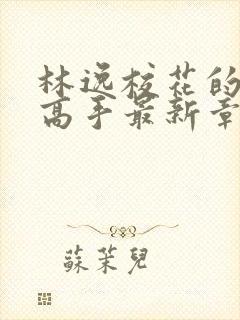 林逸校花的
高手最新章
蘇茉兒